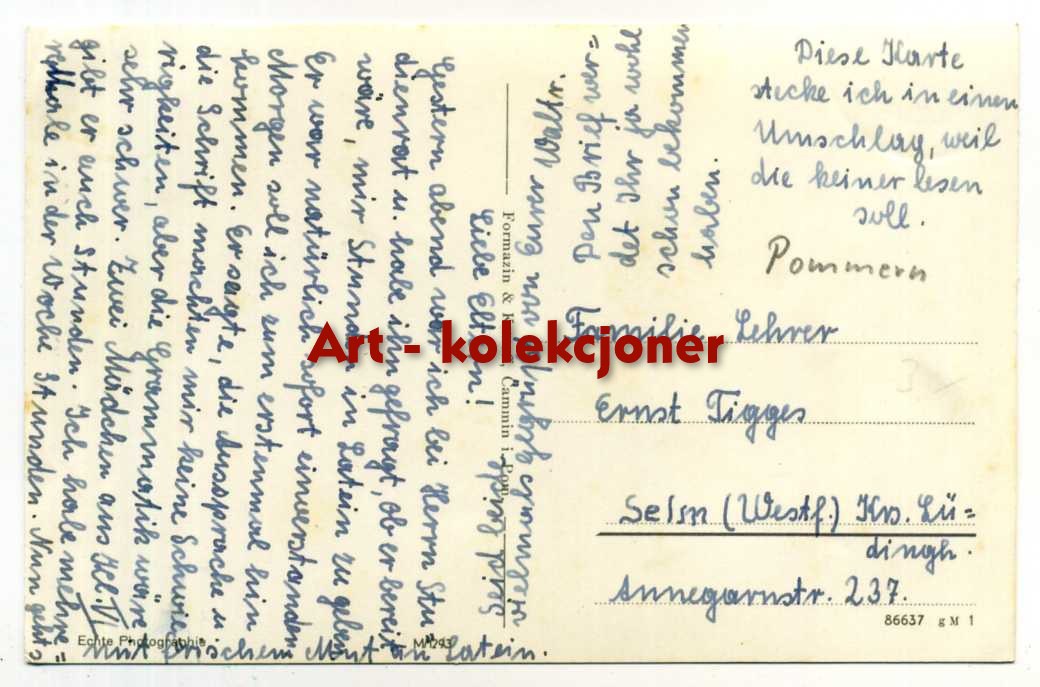 Liebe Eltern!
Gestern abend war ich bei Herrn Stu
dienrat u. habe ihn gefragt, ob er bereit
wäre, mir Stunden in Latein zu geben
Er war natürlich sofort einverstanden
Morgen soll ich zum erstenmal hin
kommen. Er sagte, die Aussprache u
die Schrift machten mir keine Schwie
rigkeiten, aber die Grammatik wäre
sehr schwer. Zwei Mädchen aus Kl. VI
gibt er auch Stunden. Ich habe mehre=
re Male in der Woche Stunden. Nun gehts
mit frischem Mut an Latein.
Seid
vielmals gegrüßt von Eurer Waltr.
Den Brief wer=
det Ihr ja wohl
schon bekommen
haben.
Diese Karte
stecke ich in einen
Umschlag, weil
die keiner lesen
soll.
Pommern
Familie Lehrer
Ernst Tigges
Selm (Westf.) Krs. Lü=
dingh.
Annegarnstr. 237.
Formazin & Cammin i. Pom.
Echte Photographie
M 1293
86637 g M 1
Art - kolekcjoner